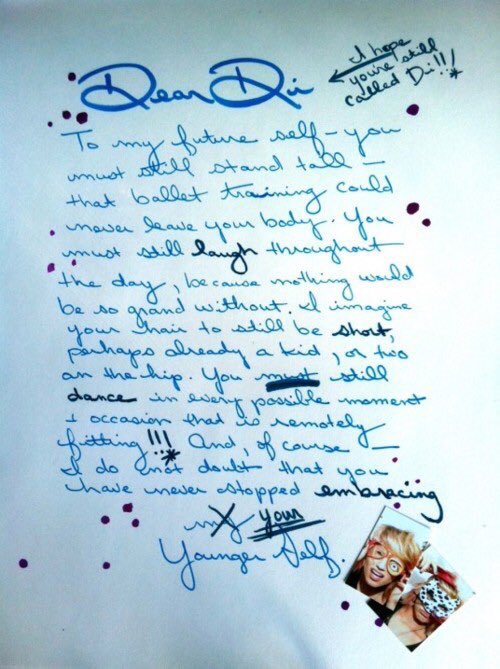 Dear Di
I hope
you're still
called Di!!!*
To my future self - you
must still stand tall -
that ballet training could
never leave your body. You
must still laugh throughout
the day, because nothing would
be so grand without. I imagine
your hair to still be short,
perhaps already a kid, or two
on the hip. You must still
dance in every possible moment
& occasion that is remotely
fitting!!!* And, of course -
I do not doubt that you
have never stopped embracing
my your
Younger Self.